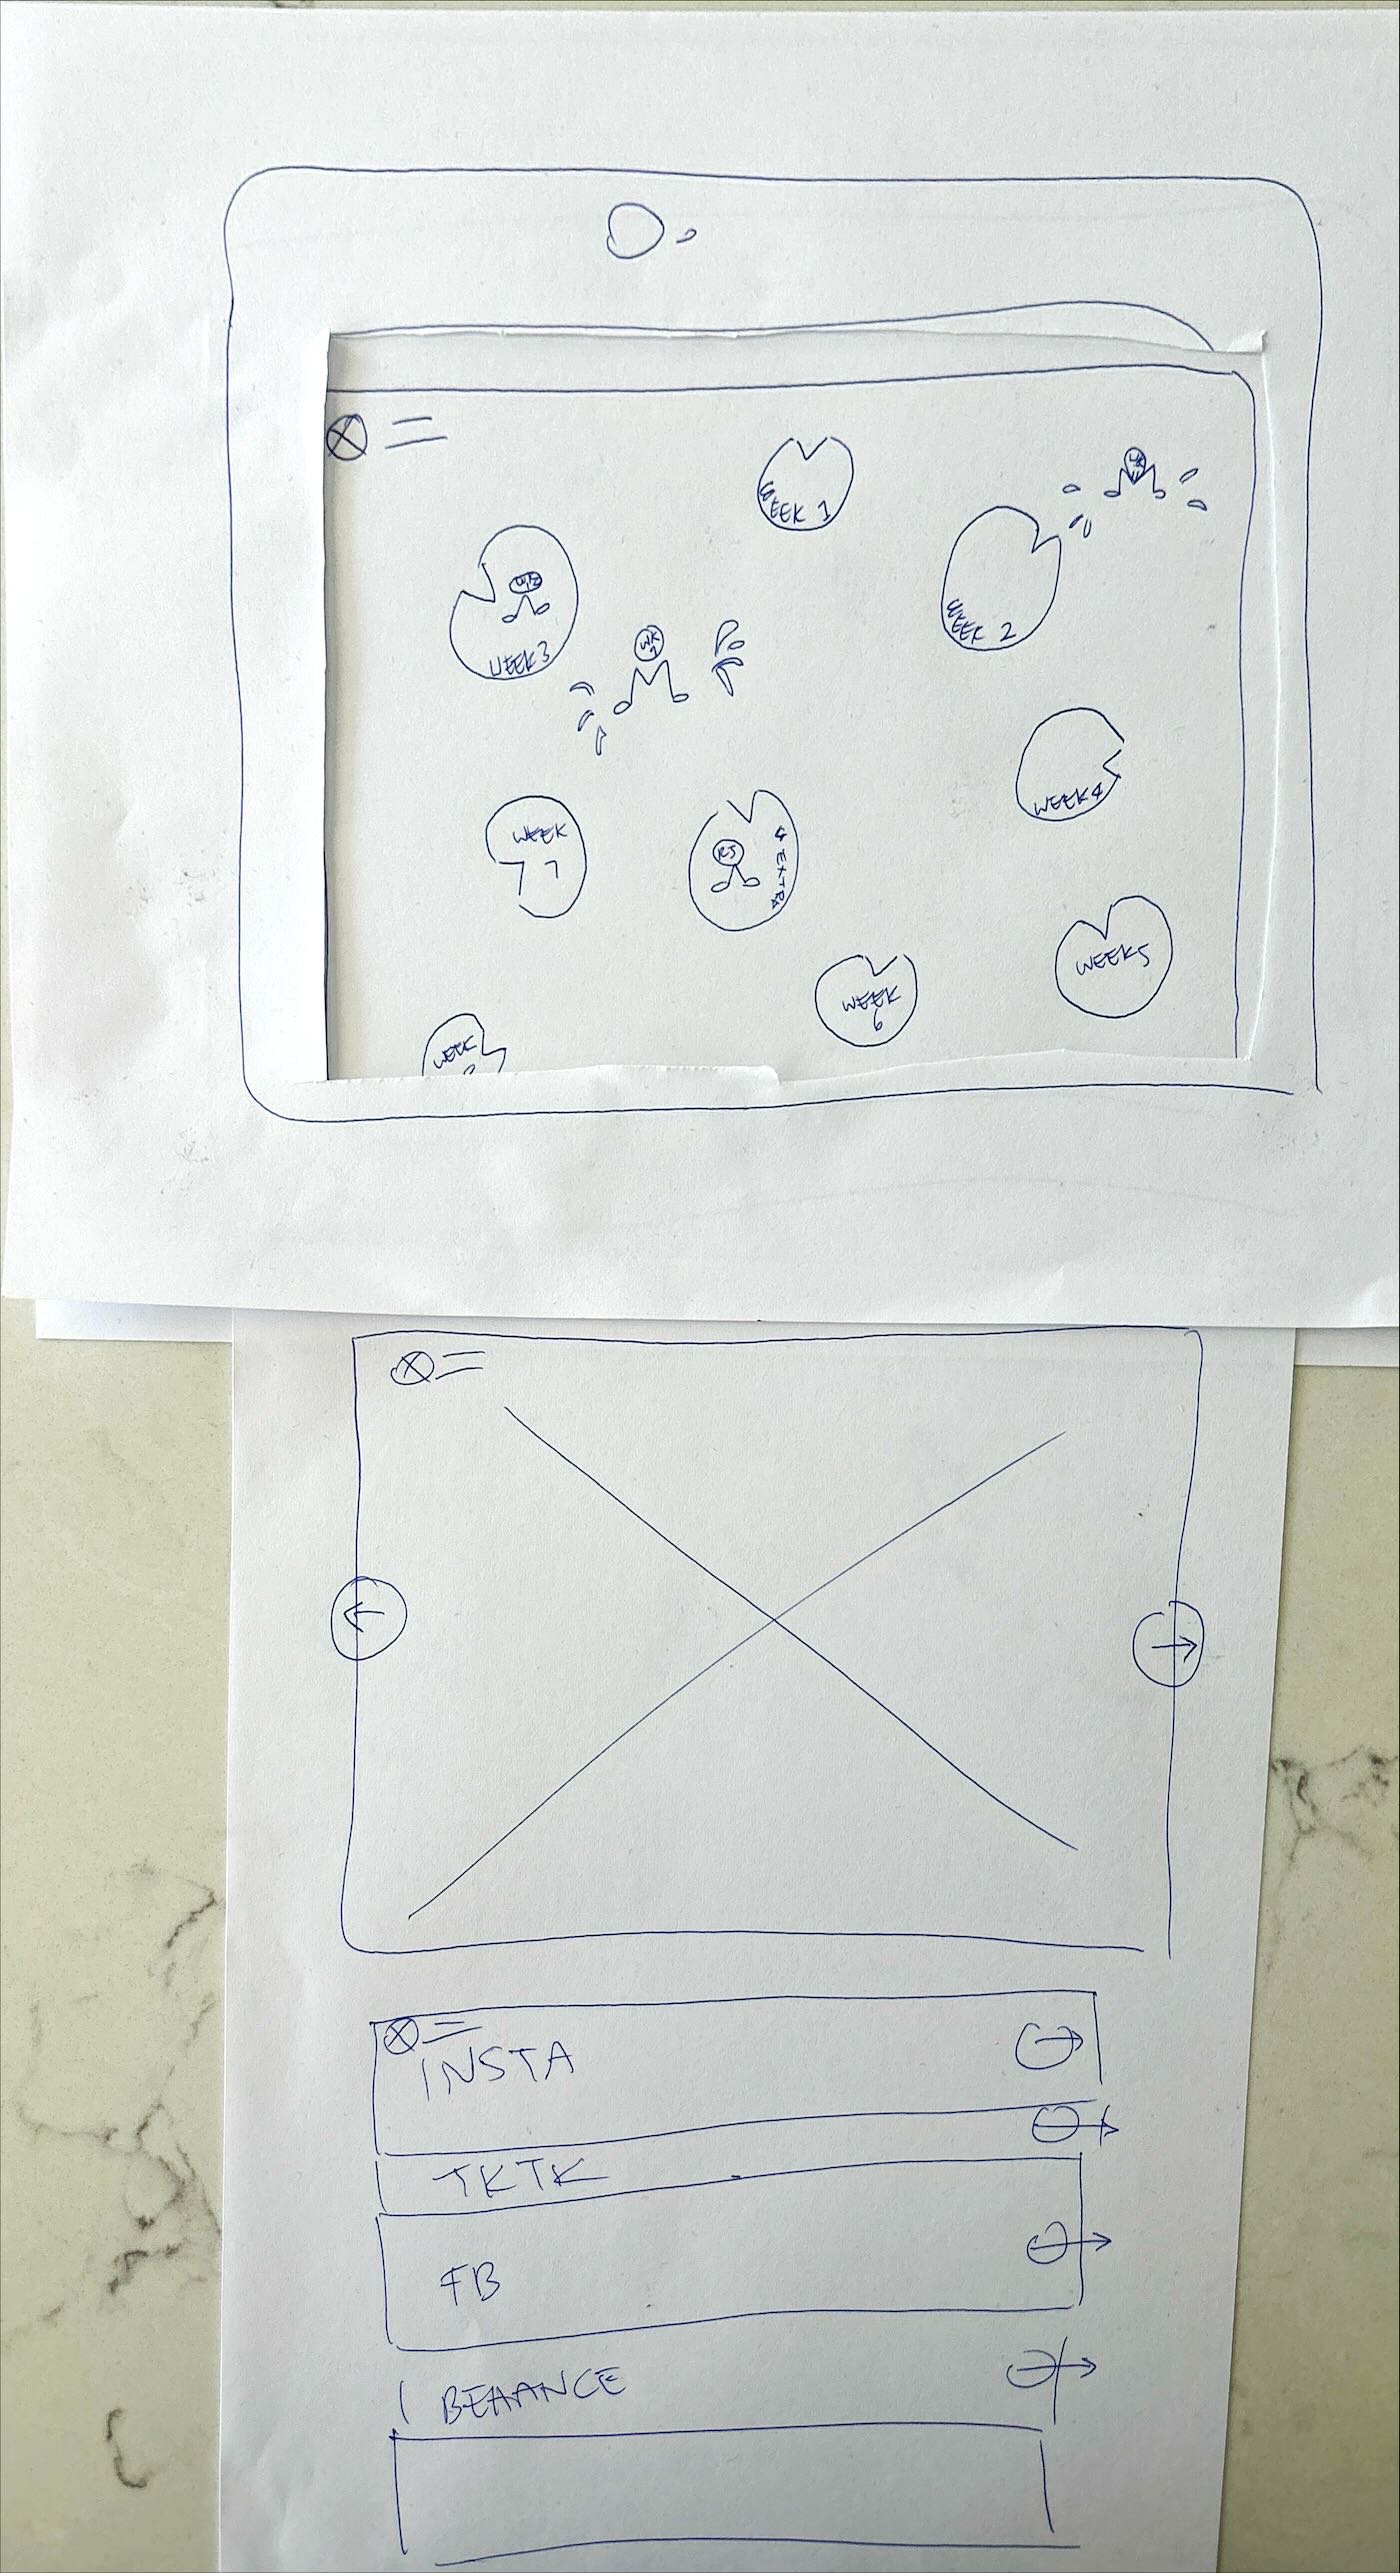 WEEK 1
WEEK 2
WEEK 3
WK
1
WEEK 4
WEEK
7
RJ
EXTRA
WEEK 5
WEEK
6
WEEK
INSTA
TKTK
FB
BEHANCE